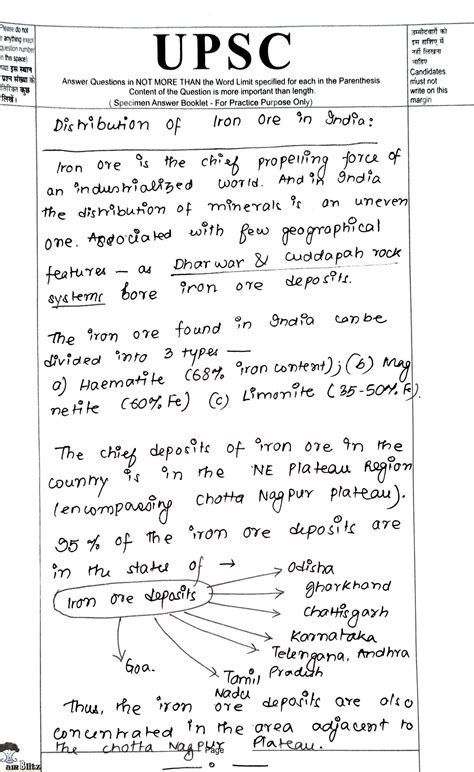 Please do not
anything except
question number
in this space)
UPSC
उम्मीदवारों को
इस हाशिए में
नहीं लिखना
चाहिए
Candidates
must not
write on this
margin
Answer Questions in NOT MORE THAN the Word Limit specified for each in the Parenthesis.
Content of the Question is more important than length.
( Specimen Answer Booklet - For Practice Purpose Only)
Distribution of Iron Ore in India:
Iron ore is the chief propelling force of
an industrialized world. And in India
the distribution of minerals is an uneven
one. Associated with few geographical
features — as Dharwar & Cuddapah rock
systems bore iron ore deposits.
The iron ore found in India can be
divided into 3 types —
a) Haematite (68% iron content); (b) Mag
netite (60% Fe) (c) Limonite (35-50% Fe).
The chief deposits of iron ore in the
country is in the NE Plateau Region
(encompassing Chotta Nagpur plateau).
95% of the iron ore deposits are
in the states of →
Iron ore deposits
Odisha
Jharkhand
Chattisgarh
Karnataka
Telengana, Andhra
Pradesh
Tamil
Nadu
Goa.
Thus, the iron ore deposits are also
concentrated in the area adjacent to
the chotta Nagpur Plateau.
Page